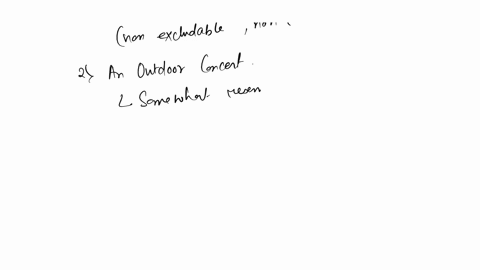 (non excludable ,
2) An Outdoor Concert.
↳ Somewhat